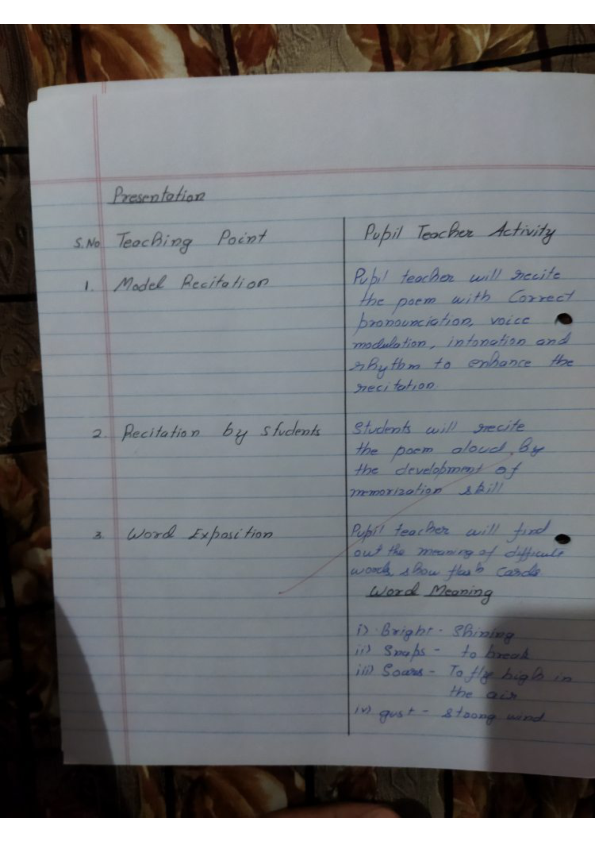 Presentation
S.No Teaching Point
Pupil Teacher Activity
1. Model Recitation
Pupil teacher will recite
the poem with Correct
pronounciation, voice
modulation, intonation and
rhythm to enhance the
recitation.
2. Recitation by Students
Students will recite
the poem aloud, By
the development of
memorization skill
3. Word Exposition
Pupil teacher will find
out the meaning of difficult
words, show flash cards
Word Meaning
i) Bright - Shining
ii) Snaps - to break
iii) Soars - To fly high in
the air
iv) gust - strong wind